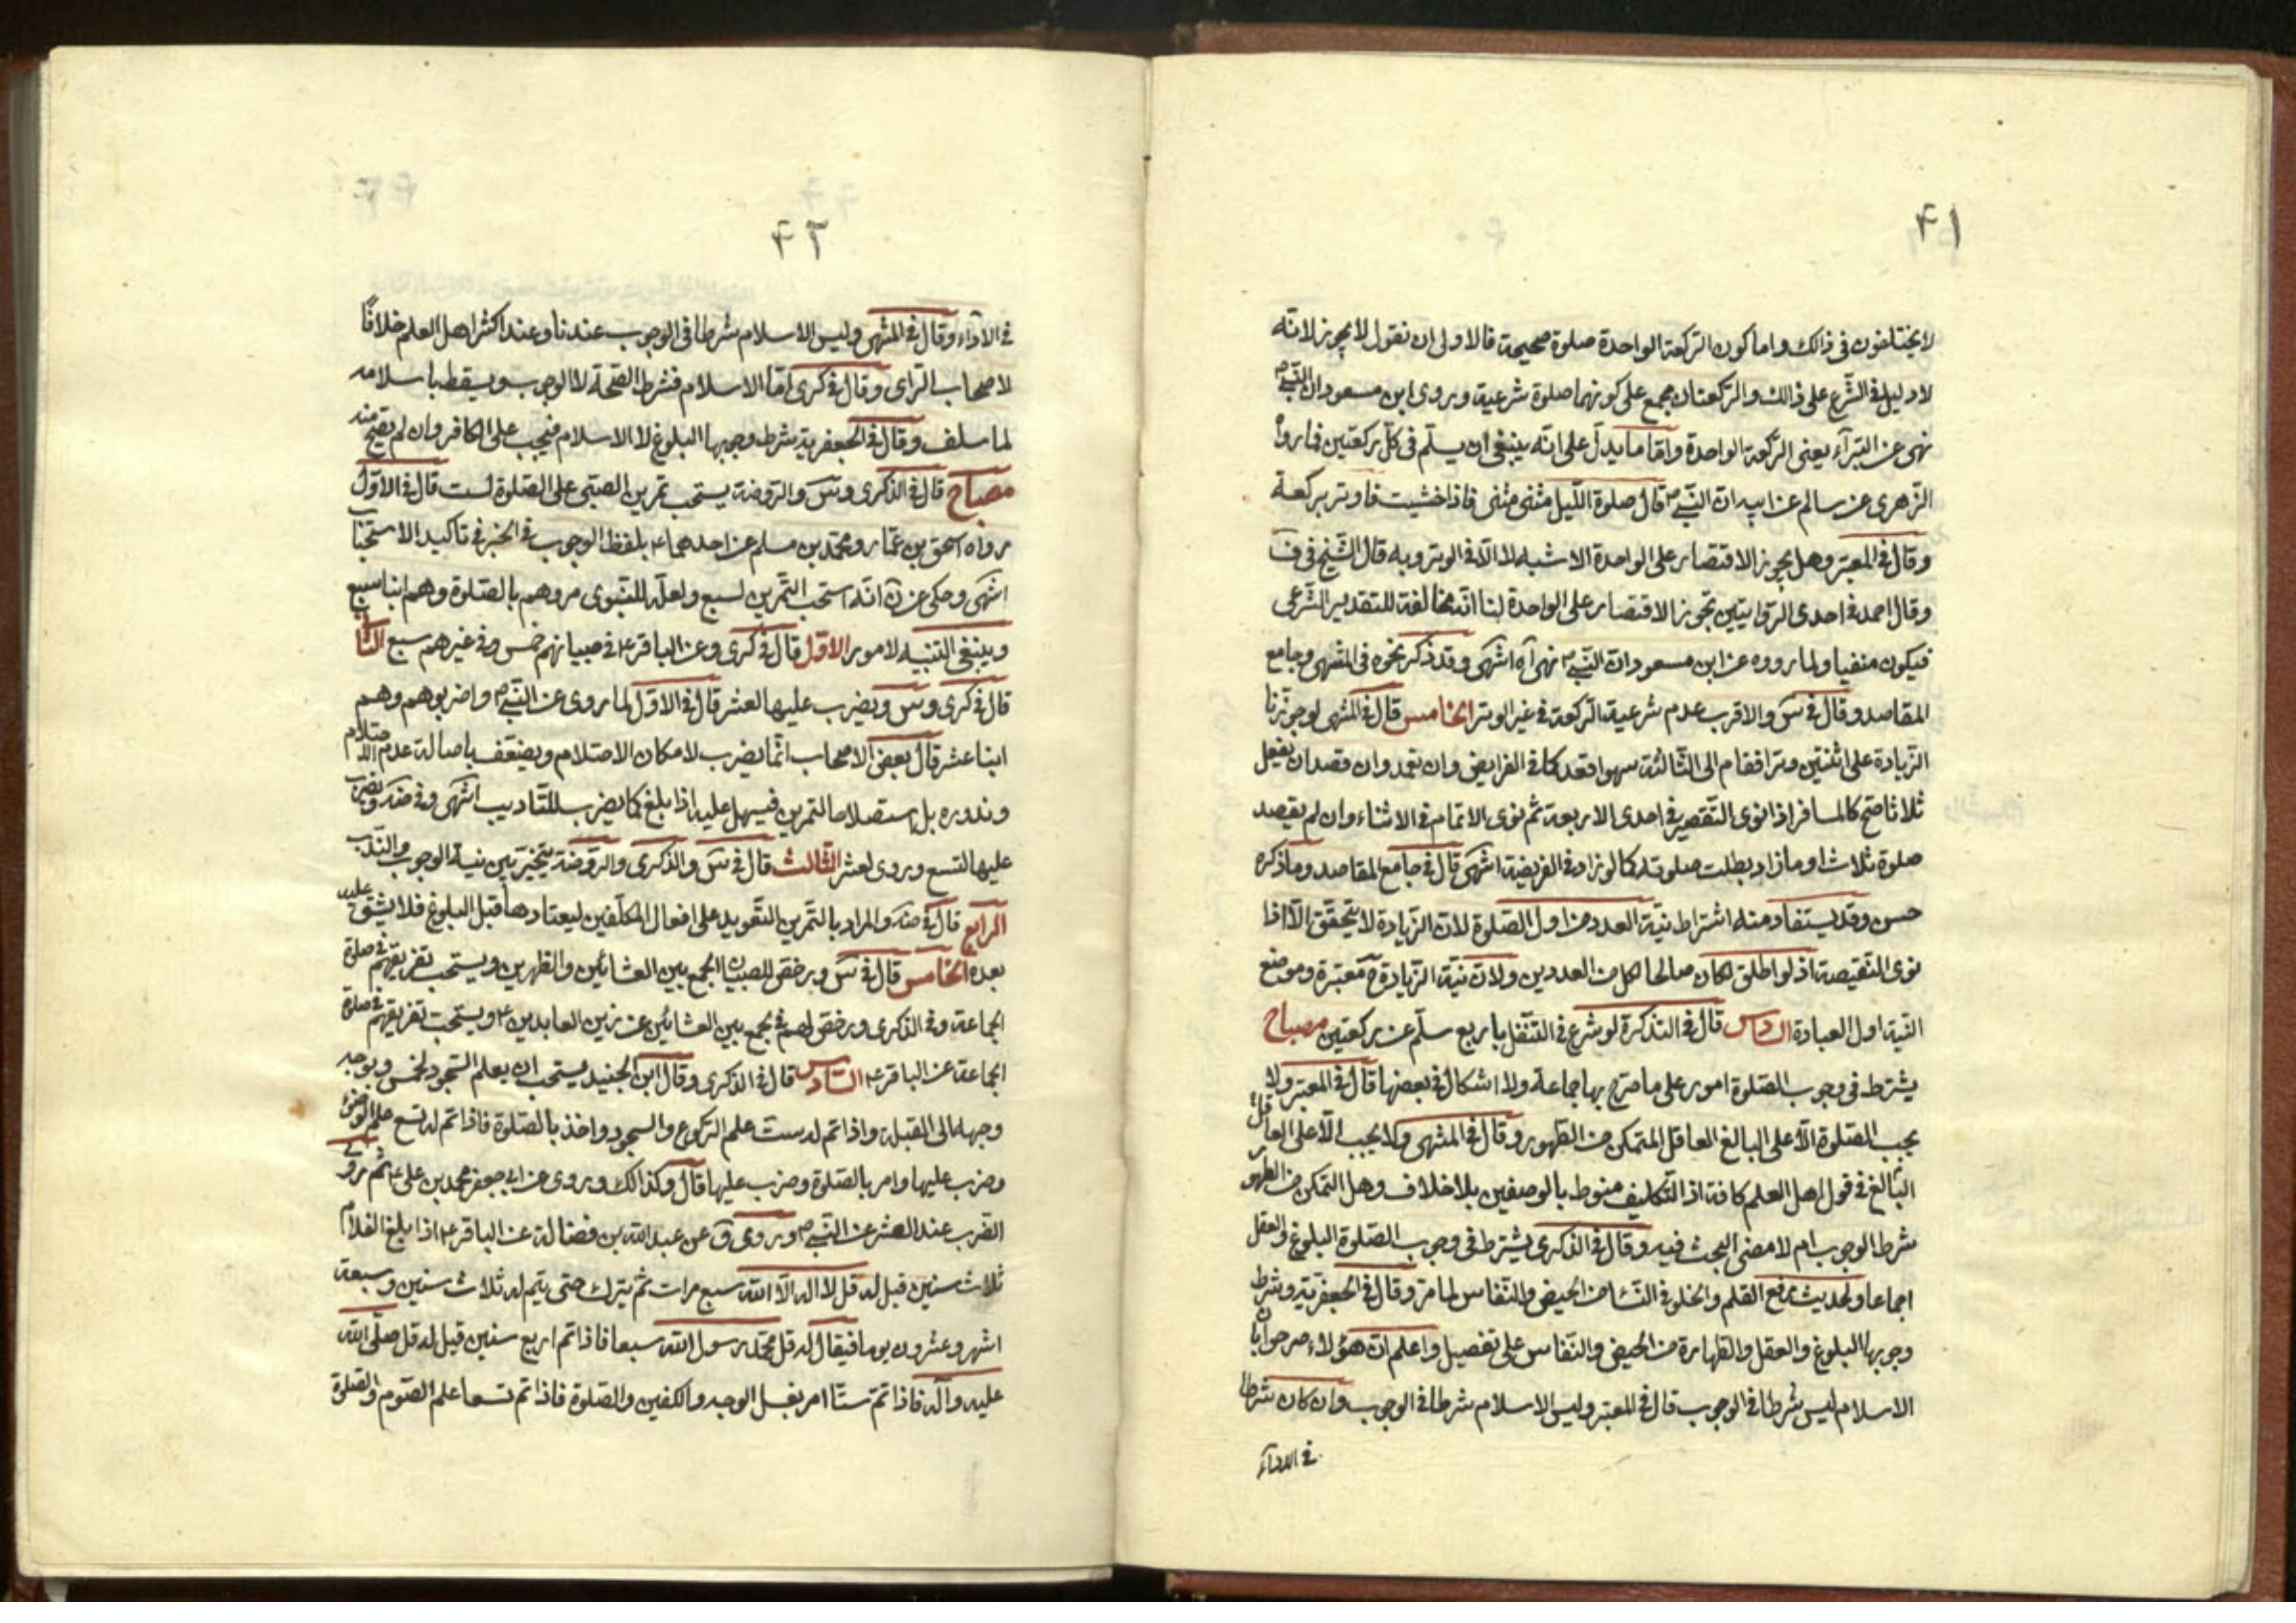 ۴۱
لا يختلفون فى ذالك واما كون الركعة الواحدة صلوة صحيحة فالاولى ان نقول لا يجوز لانّه
لا دليل فى الشّرع على ذالك والركعتان مجمع على كونهما صلوة شرعية وروى ابن مسعود ان النّبى ص
نهى عن البتراء يعنى الرّكعة الواحدة وامّا ما يدلّ على انّه ينبغى ان يسلّم فى كلّ ركعتين فما رواه
الزّهرى عن سالم عن ابيه انّ النّبى ص قال صلوة اللّيل مثنى مثنى فاذا خشيت فاوتر بركعة
وقال فى المعتبر وهل يجوز الاقتصار على الواحدة الاشبه لا الّا فى الوتر وبه قال الشّيخ فى ف
وقال احمد فى احدى الرّوايتين تجوز الاقتصار على الواحدة لنا انّه مخالفة للتقدير الشّرعى
فيكون منفيا ولما رووه عن ابن مسعود انّ النّبى ص نهى آه انتهى وقد ذكر نحوه فى المنتهى وجامع
المقاصد وقال فى س والاقرب عدم شرعية الركعة فى غير الوتر الخامس قال فى المنتهى لو جوّزنا
الزّيادة على اثنتين وتراً فقام الى الثّالثة سهوا قعد كما فى الفرايض وان تعمد وان قصد ان يفعل
ثلاثا صحّ كالمسافر اذا نوى التّقصير فى احدى الاربعة ثم نوى الاتمام فى الاثناء وان لم يقصد
صلوة ثلاث او ما زاد بطلت صلوته كما لو زاد فى الفريضة انتهى قال فى جامع المقاصد وما ذكره
حسن وقد يستفاد منه اشتراط نيّة العدد من اول الصّلوة لانّ الزّيادة لا يتحقّق الّا اذا
نوى النّقيصة اذ لو اطلق لكان صالحا لكل من العددين ولانّ نيّة الزّيادة ح معتبرة وموضع
النّية اول العبادة السّادس قال فى التذكرة لو شرع فى التنفّل باربع سلّم عن ركعتين مصباح
يشترط فى وجوب الصّلوة امور على ما صرّح بها جماعة ولا اشكال فى بعضها قال فى المعتبر ولا
يجب الصّلوة الّا على البالغ العاقل المتمكن من الطّهور وقال فى المنتهى ولا يجب الّا على العاقل
البالغ فى قول اهل العلم كافة اذ التّكليف منوط بالوصفين بلا خلاف وهل التمكن من الطهور
شرط الوجوب ام لا مضى البحث فيه وقال فى الذكرى يشترط فى وجوب الصّلوة البلوغ والعقل
اجماعا ولحديث رفع القلم والخلو فى النّساء من الحيض والنّفاس لما مر وقال فى الجعفريّة وشرط
وجوبها البلوغ والعقل والطّهارة من الحيض والنّفاس على تفصيل واعلم انّ هؤلاء صرحوا بان
الاسلام ليس شرطا فى الوجوب قال فى المعتبر وليس الاسلام شرطا فى الوجوب وان كان شرطا
فى الاداء
۴۲
فى الاداء وقال فى المنتهى وليس الاسلام شرطا فى الوجوب عندنا وعند اكثر اهل العلم خلافًا
لاصحاب الرّاى وقال فى كرى امّا الاسلام فشرط الصّحة لا الوجوب ويسقط باسلامه
لما سلف وقال فى الجعفرية شرط وجوبها البلوغ لا الاسلام فيجب على الكافر وان لم تصحّ منه
مصباح قال فى الذكرى وس والرّوضة يستحب تمرين الصّبى على الصّلوة لست قال فى الاوّل
رواه اسحق بن عمّار ومحمّد بن مسلم عن احدهما ع بلفظ الوجوب فى الخبر فى تاكيد الاستحباب
انتهى وحكى عن ن انّه استحب التّمرين لسبع ولعلّه للنّبوى مروهم بالصّلوة وهم ابناء سبع
وينبغى التنبيه لامور الاوّل قال فى كرى وعن الباقر ع فى صبيانهم خمس وفى غيرهم سبع الثّانى
قال فى كرى وس ويضرب عليها لعشر قال فى الاوّل لما روى عن النّبى ص واضربوهم وهم
ابناء عشر قال بعض الاصحاب انّما يضرب لامكان الاحتلام ويضعّف باصالة عدم الاحتلام
وندوره بل استصلاحا لتمرين فيسهل عليه اذا بلغ كما يضرب للتّاديب انتهى وفى ضه ويضرب
عليها لتسع وروى لعشر الثّالث قال فى س والذكرى والروضة يتخيّر بين نية الوجوب والنّدب
الرابع قال فى ضه والمراد بالتّمرين التّعويد على افعال المكلّفين ليعتادها قبل البلوغ فلا يشق عليه
بعده الخامس قال فى س ورخص للصبيان الجمع بين العشائين والظهرين ويستحب تفريقهم فى صلوة
الجماعة وفى الذكرى ورخص لهم فى الجمع بين العشائين عن زين العابدين ع ويستحب تفريقهم فى صلوة
الجماعة عن الباقر ع السّادس قال فى الذكرى وقال ابن الجنيد يستحب ان يعلم السّجود لخمس ويوجه
وجهه الى القبلة واذا تم له ست علم الرّكوع والسجود واخذ بالصّلوة فاذا تم له تسع علم الوضوء
وضرب عليها وامر بالصّلوة وضرب عليها قال وكذالك وروى عن ابى جعفر محمد بن على ع ثم روى
الضّرب عند العشر عن النّبى ص وروى ق عن عبد الله بن فضالة عن الباقر ع اذا بلغ الغلام
ثلاث سنين قيل له قل لا اله الّا الله سبع مرات ثم يترك حتى يتم له ثلاث سنين وسبعة
اشهر وعشرون يوما فيقال له قل محمّد رسول الله سبعا فاذا تم اربع سنين قيل له قل صلّى الله
عليه وآله فاذا تمّ ستّا امر بغسل الوجه والكفين والصّلوة فاذا تم تسعا علم الصّوم والصّلوة